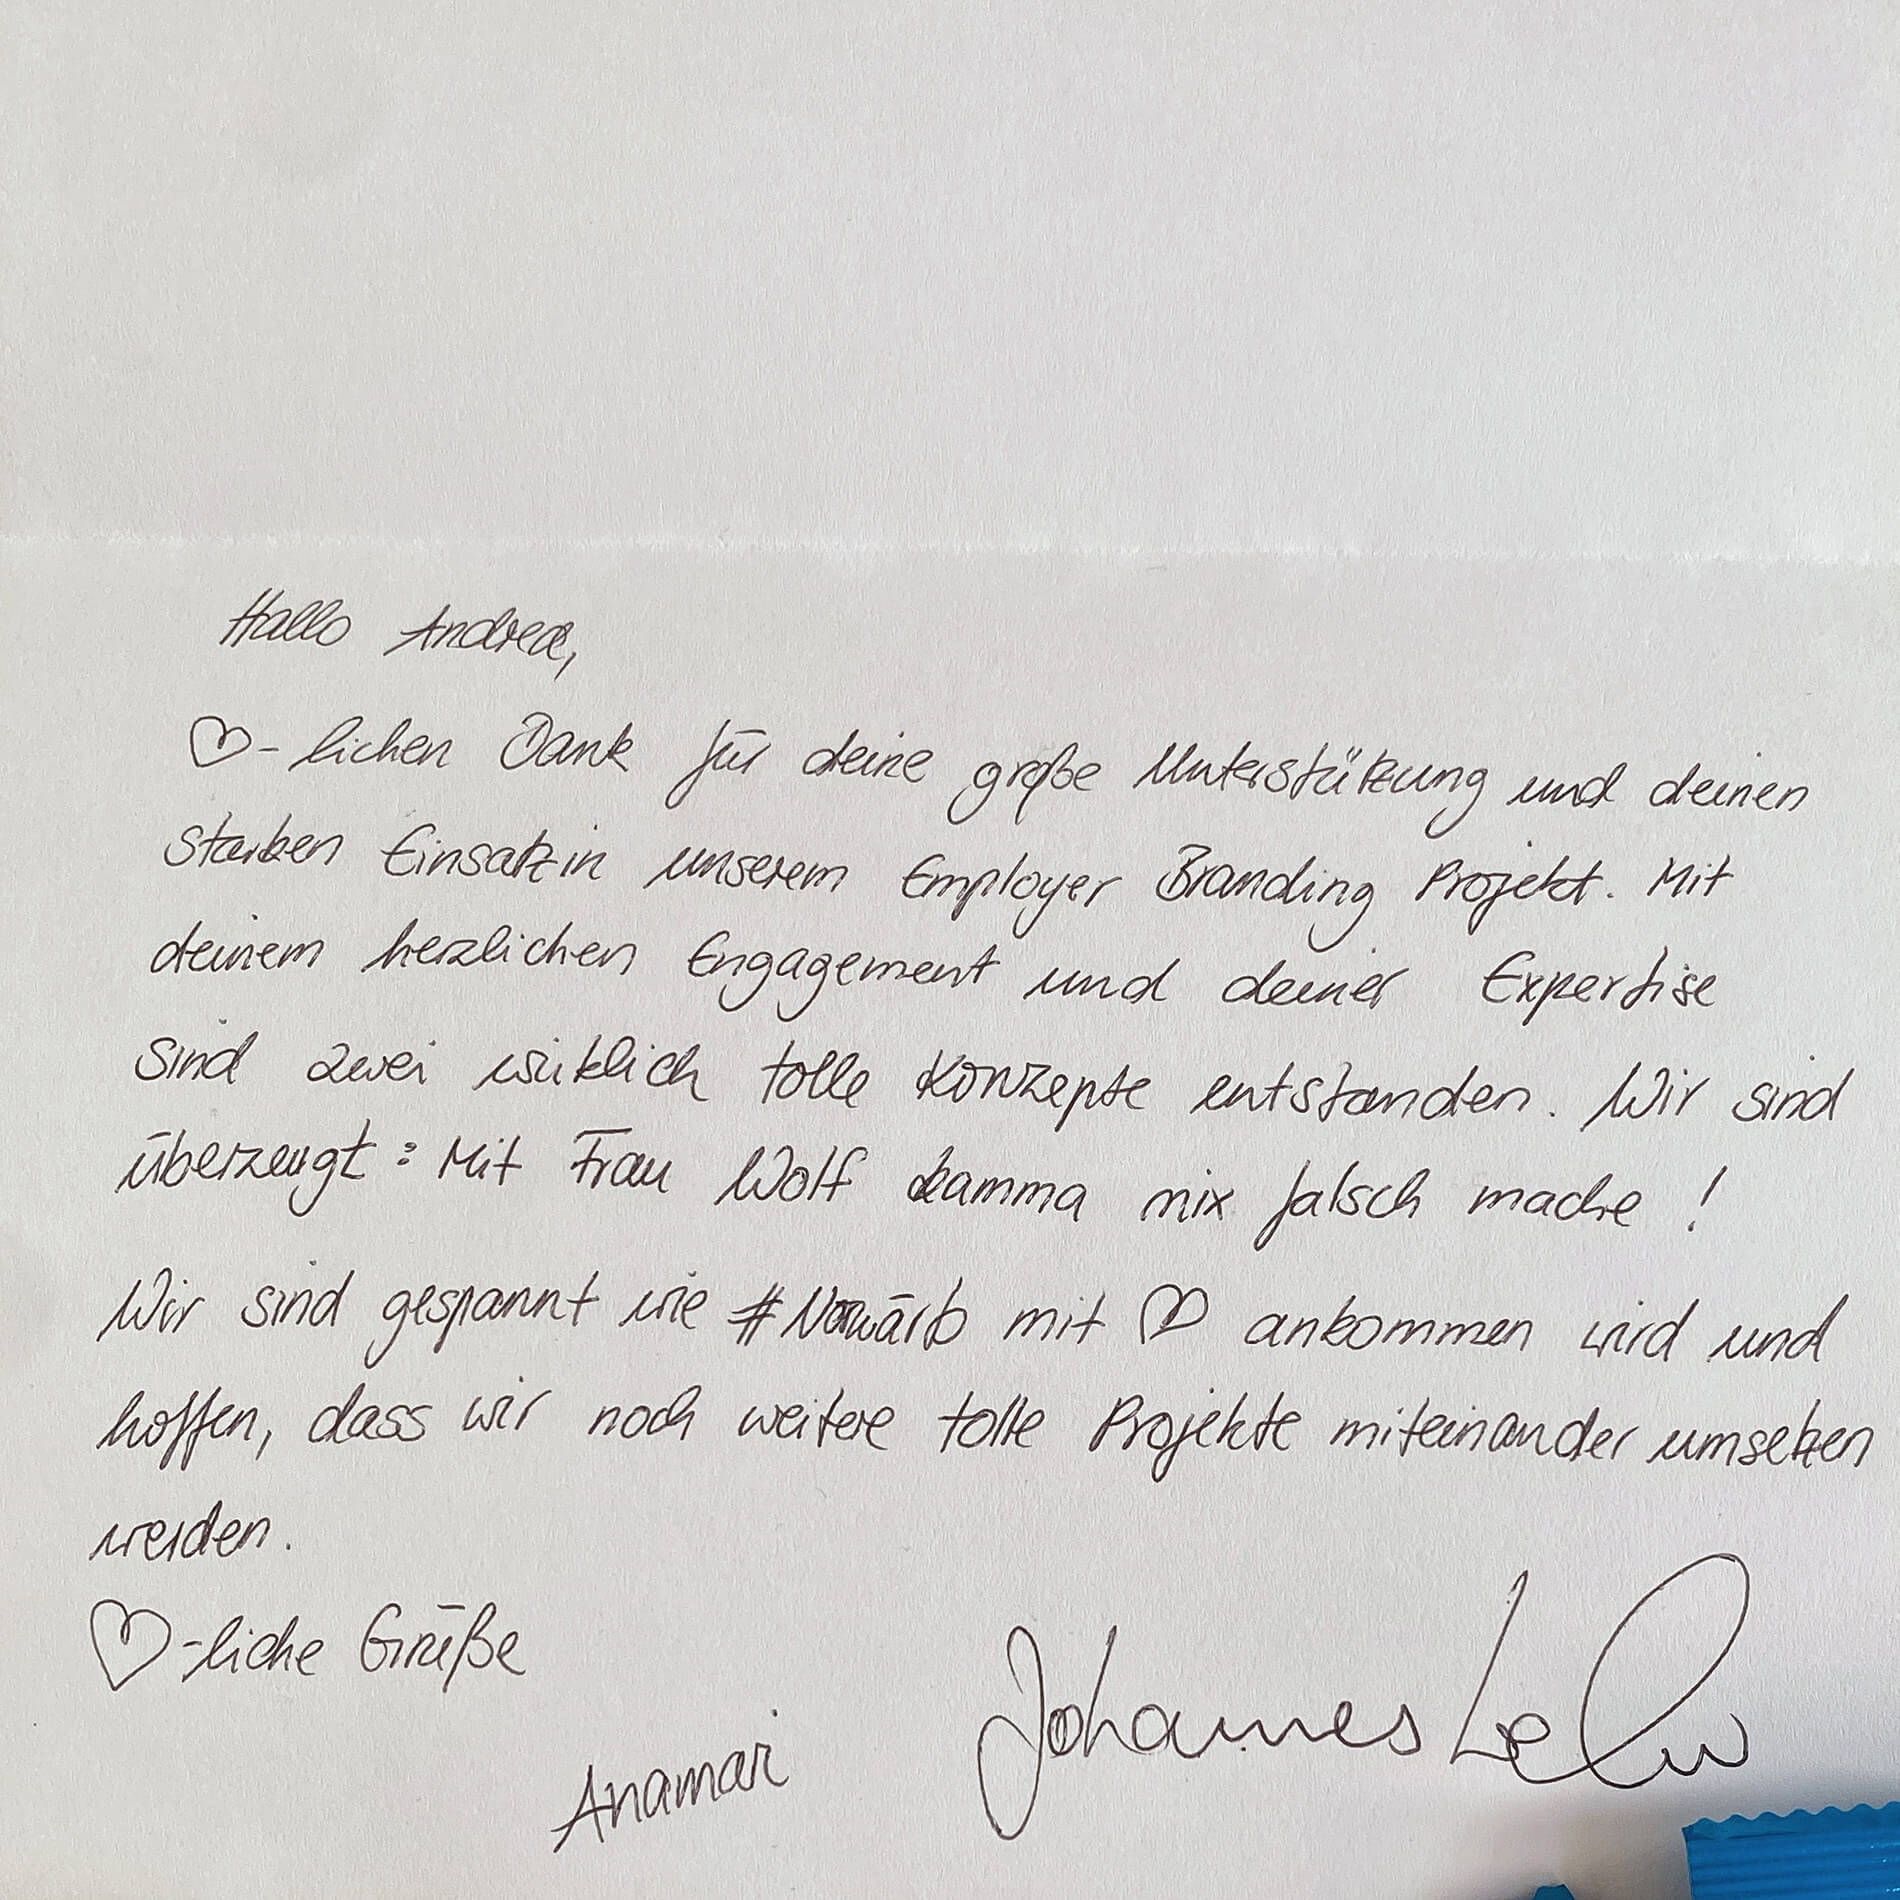 Hallo Andrea,
♡-lichen Dank für deine große Unterstützung und deinen
starken Einsatz in unserem Employer Branding Projekt. Mit
deinem herzlichen Engagement und deiner Expertise
sind zwei wirklich tolle Konzepte entstanden. Wir sind
überzeugt: Mit Frau Wolf kamma nix falsch mache!
Wir sind gespannt wie mit ♡ ankommen wird und
hoffen, dass wir noch weitere tolle Projekte miteinander umsetzen
werden.
♡-liche Grüße
Anamari
Johannes